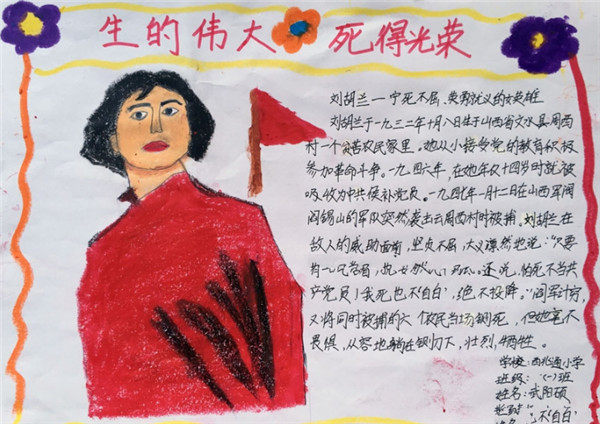 生的伟大 死得光荣
刘胡兰一宁死不屈、英勇就义的女英雄
刘胡兰于一九三二年十月八日生于山西省文水县周西
村一个贫苦农民家里。她从小接受党的教育积极
参加革命斗争。一九四六年,在她年仅十四岁时就被
吸收为中共候补党员。一九四七年一月十二日在山西军阀
阎锡山的军队突然袭击云周西村时被捕。刘胡兰在
敌人的威胁面前,坚贞不屈,大义凛然地说:“只要
有一口气 还说,怕死不当共
产党员!我死也不‘自白’,绝不投降。”阎军计穷,
又将同时被捕的六位农民当场铡死,但她毫不
畏惧,从容地躺在铡刀下,壮烈牺牲。
学校:西兆通小学
班级:(一)班
姓名:武阳硕
“不‘自白’